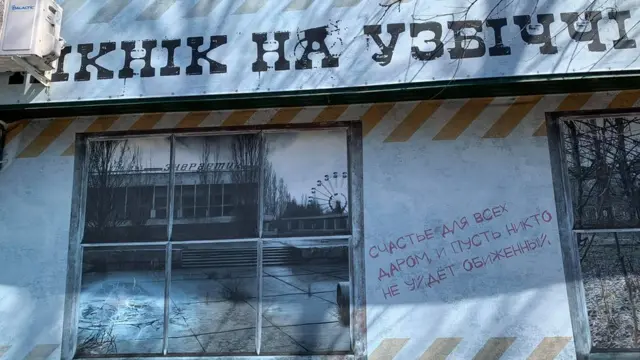 GALACTIC
ПІКНІК НА УЗБІЧЧІ
энергетик
СЧАСТЬЕ ДЛЯ ВСЕХ
ДАРОМ, И ПУСТЬ НИКТО
НЕ УЙДЁТ ОБИЖЕННЫЙ.